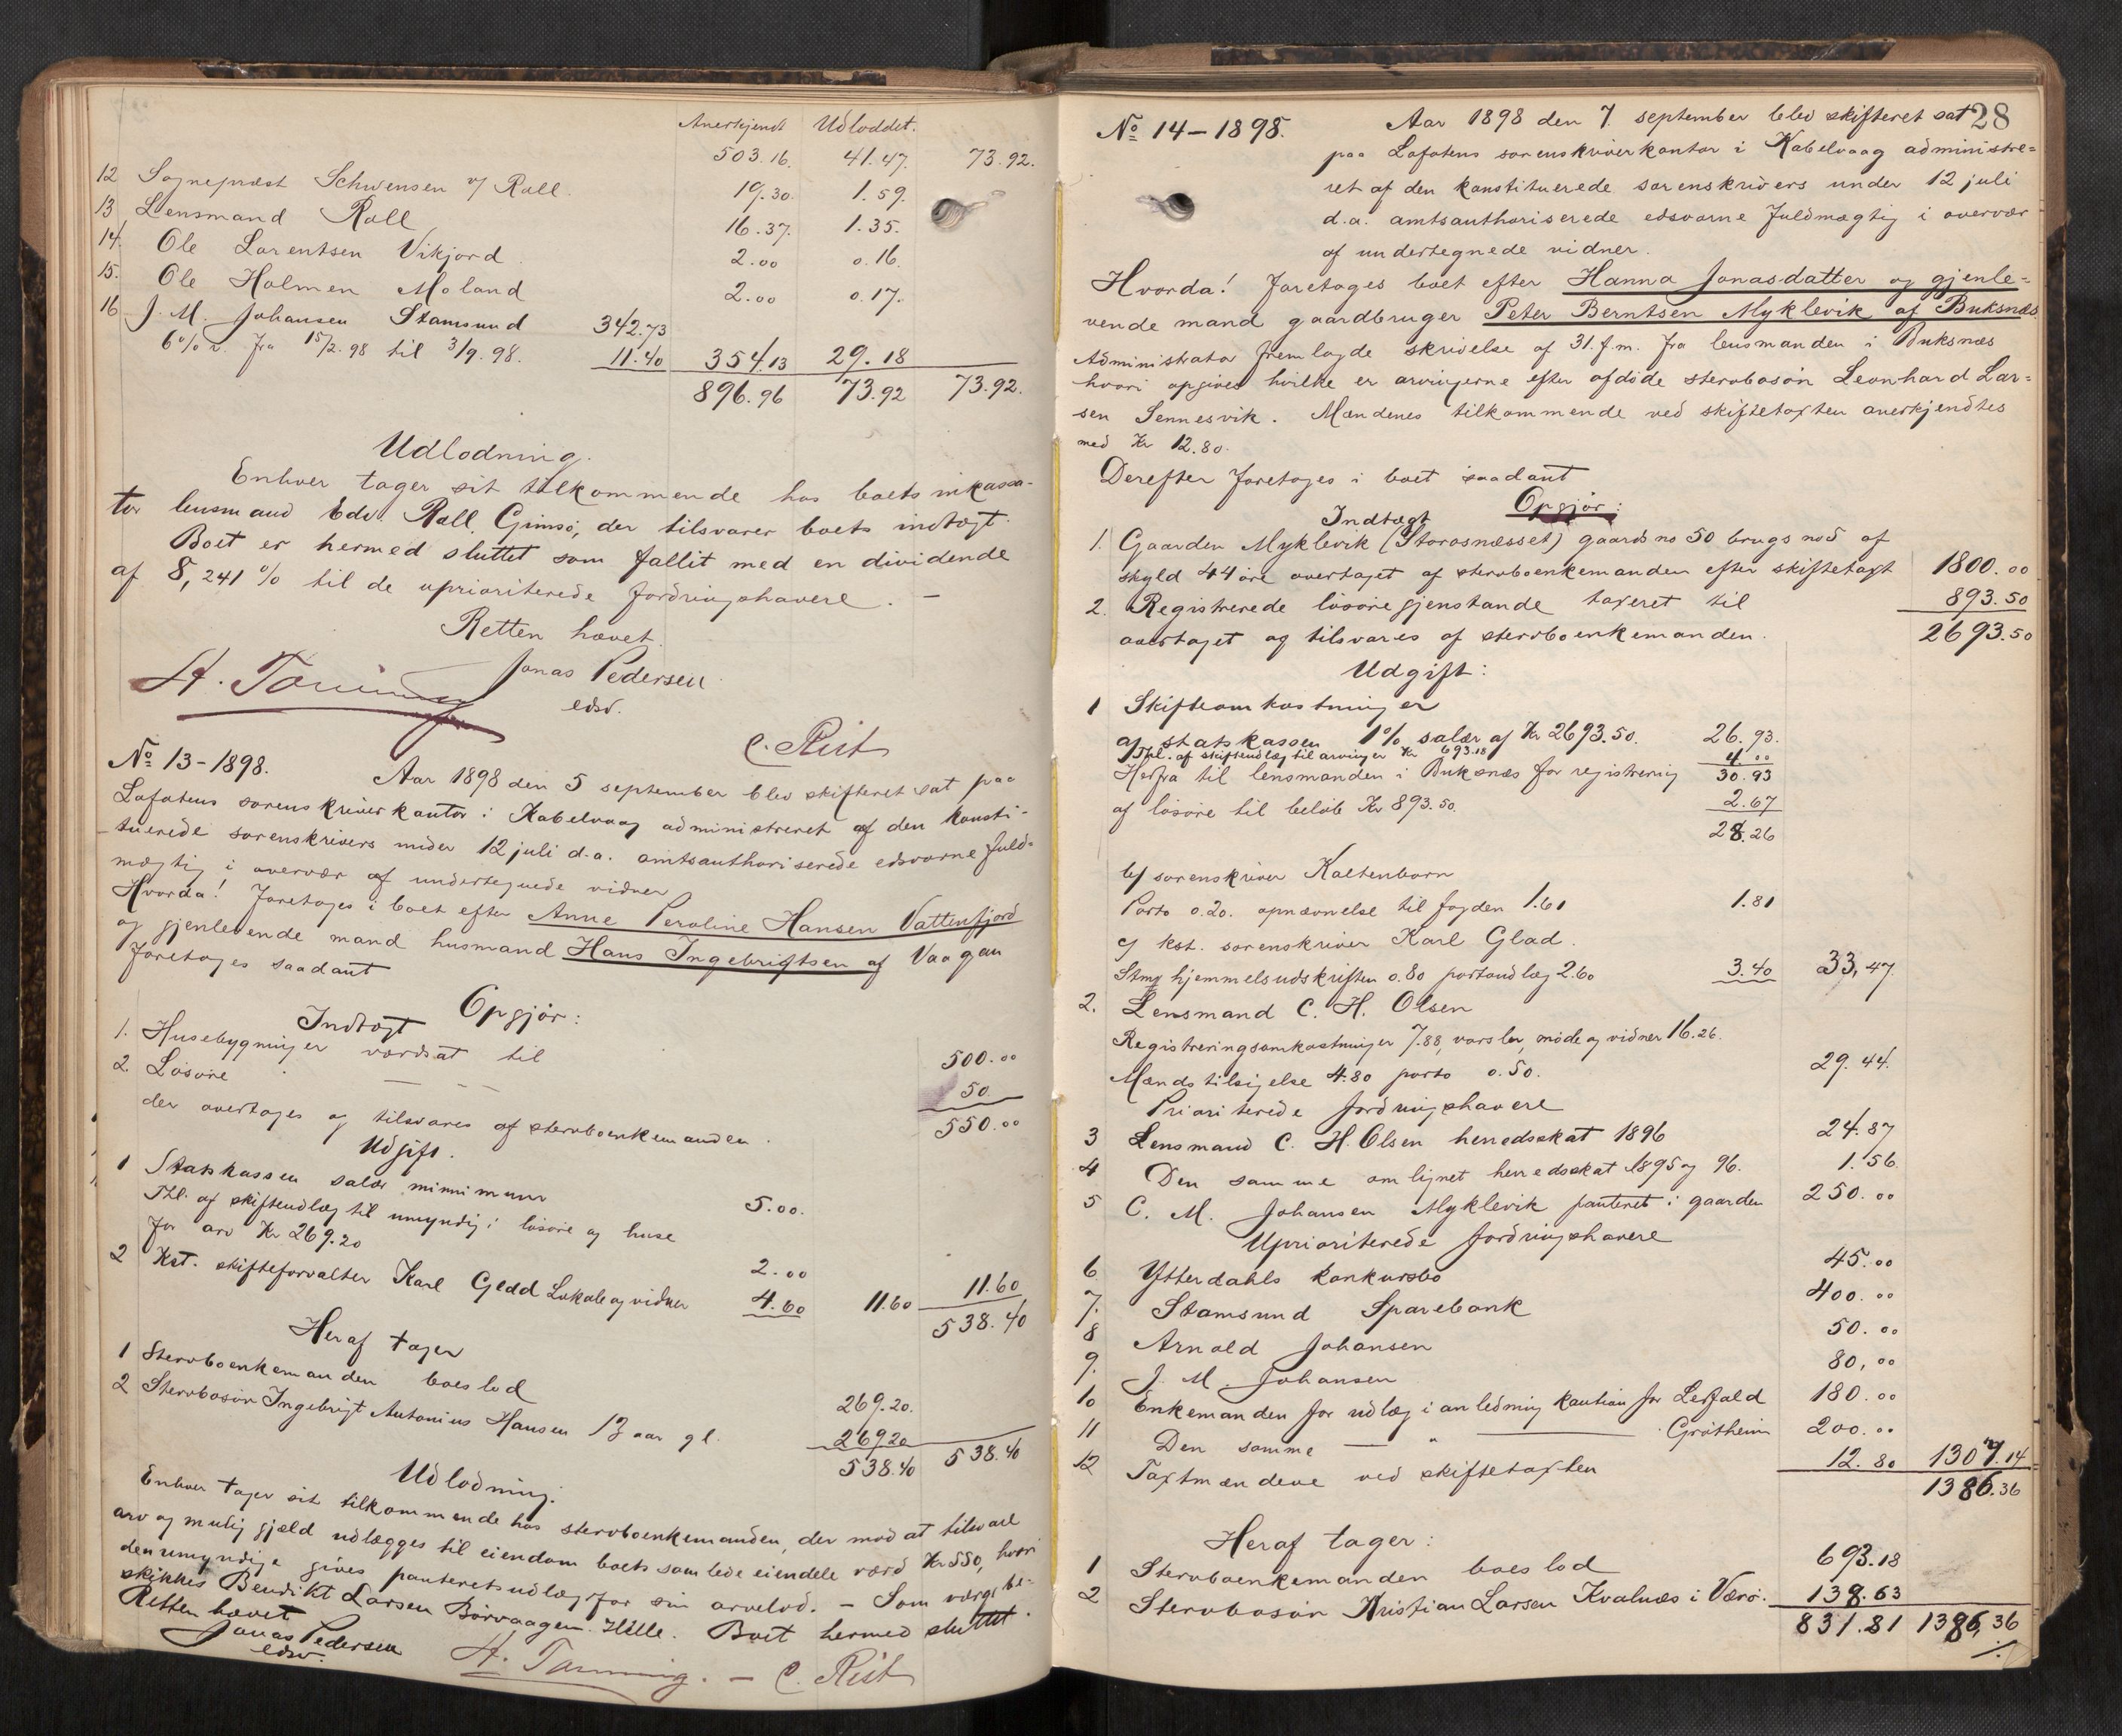 Anerkjendt Udloddet.
503.16. 41.47. 73.92.
12 Sognepræst Schwensen v/ Rall. 19.30. 1.59.
13 Lensmand Rall 16.37. 1.35.
14. Ole Larentsen Vikjord 2.00 0.16.
15. Ole Holmen Moland 2.00 0.17.
16 J. M. Johansen Stamsund 342.73
6% r. fra 15/2.98 til 3/9.98. 11.40 354.13 29.18
896.96 73.92 73.92.
Udlodning.
Enhver tager sit tilkommende hos boets inkassa-
tor lensmand Edv. Rall, Gimsö, der tilsvarer boets indtægt.
Boet er hermed sluttet som fallit med en dividende
af 8,241% til de uprioriterede fordringshavere. —
Retten hævet.
Jonas Pedersen
edsv.
C. Rist
No 13-1898. Aar 1898 den 5 september blev skifteret sat paa
Lofotens sorenskriverkontor i Kabelvaag administreret af den konsti-
tuerede sorenskrivers under 12 juli d.a. amtsauthoriserede edsvorne fuld-
mægtig i overvær af undertegnede vidner
Hvorda! Foretages i boet efter Anne Peroline Hansen Vattenfjord
og gjenlevende mand husmand Hans Ingebrigtsen af Vaagan
foretages saadant
Opgjör:
Indtægt
1. Husebygninger værdsat til 500.00
2. Lösöre — " — 50.
der overtages og tilsvares af stervboenkemanden. 550.00
Udgift.
1 Statskassen salær minnimum 5.00.
Thl. af skifteudlæg til umyndig i lösöre og huse
for arv Kr 269.20 2.00
2 Kst. skifteforvalter Karl Glad Lokale og vidner 4.60 11.60 11.60
538.40
Heraf tager
1 Stervboenkemanden boeslod 269.20.
2 Stervbosön Ingebrigt Antonius Hansen 13 aar gl. 269.20
538.40 538.40
Udlodning.
Enhver tager sit tilkommende hos stervboenkemanden, der mod at tilsvare
arv og mulig gjæld udlægges til eiendom boets samlede eiendele værd Kr 550, hvori
den umyndige gives panteretsudlæg for sin arvelod. — Som værge be-
skikkes Bendikt Larsen Börvaagen. Hille. Boet hermed sluttet.
Retten hævet
Jonas Pedersen
edsv.
H. Tanning. — C. Rist
28
No 14-1898. Aar 1898 den 7 september blev skifteret sat
paa Lofotens sorenskriverkontor i Kabelvaag administre=
ret af den konstituerede sorenskrivers under 12 juli
d.a. amtsauthoriserede edsvorne fuldmægtig i overvær
af undertegnede vidner.
Hvorda! Foretages boet efter Hanna Jonasdatter og gjenle=
vende mand gaardbruger Peter Berntsen Myklevik af Buksnæs.
Administrator fremlagde skrivelse af 31. f.m. fra lensmanden i Buksnæs
hvori opgives hvilke er arvingerne efter afdöde stervbosön Leonhard Lar=
sen Sennesvik. Mændenes tilkommende ved skiftetaxten anerkjendtes
med Kr 12.80.
Derefter foretages i boet saadant
Opgjör:
Indtægt
1. Gaarden Myklevik (Storosnæsset) gaards no 50 brugs no 5 af
skyld 44 öre overtaget af stervboenkemanden efter skiftetaxt 1800.00
2. Registrerede lösöregjenstande taxeret til 893.50
overtaget og tilsvares af stervboenkemanden. 2693.50
Udgift:
1 Skifteomkostninger
a/ statskassen 1% salær af Kr 2693.50. 26.93.
Thl. af skifteudlæg til arvinger Kr 693.18 4.00
Herfra til lensmanden i Buksnæs for registrering 30.93
af lösöre til belöb Kr 893.50. 2.67
28.26
b/ sorenskriver Kaltenborn
Porto 0.20. opnævnelse til fogden 1.61 1.81
c/ kst. sorenskriver Karl Glad.
Stmp hjemmelsudskriften 0.80 portoudlæg 2.60 3.40 33,47.
2. Lensmand C. H. Olsen
Registreringsomkostninger 7.88, varsler, möde og vidner 16.26.
Mænds tilsigelse 4.80 porto 0.50. 29.44.
Prioriterede fordringshavere
3 Lensmand C. H. Olsen herredsskat 1896 24.87
4 Den samme omlignet herredsskat 1895 og 96. 1.56
5 C. M. Johansen Myklevik panteret i gaarden 250.00
Uprioriterede fordringshavere
6 Ytterdahls konkursbo 45.00
7. Stamsund Sparebank 400.00
8 Arnold Johansen 50.00
9. J. M. Johansen 80,00
10 Enkemanden for udlæg i anledning kaution for Leffald 180.00
11 Den samme — " — Gröttheim 200.00
12 Taxtmændene ved skiftetaxten 12.80 1307.14
1386.36
Heraf tager:
1 Stervboenkemanden boeslod 693.18
2 Stervbosön Kristian Larsen Kvalnæs i Værö. 138.63
831.81 1386,36